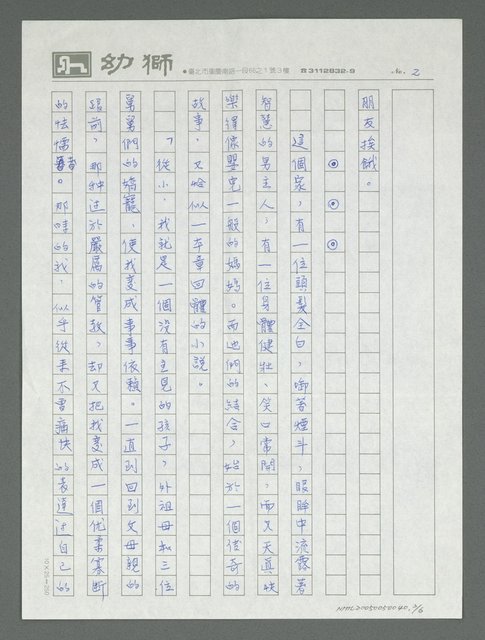 幼獅
●臺北市重慶南路一段66之1號3樓
☎3112832-9
No. 2
朋友挨餓。
◎ ◎ ◎
這個家，有一位頭髮全白，啣著煙斗，眼眸中流露著
智慧的男主人，有一位身體健壯、笑口常開，而又天真快
樂得像嬰兒一般的媽媽。而他們的結合，始於一個傳奇的
故事，又恰似一本章回體的小說。
「從小，我就是一個沒有主見的孩子，外祖母和三位
舅舅們的嬌寵，使我變成事事依賴。一直到回到父母親的
跟前，那種過於嚴厲的管教，却又把我變成一個优柔寡斷
的怯懦者。那時的我，似乎從来不曾痛快的表達過自己的
10×25=250